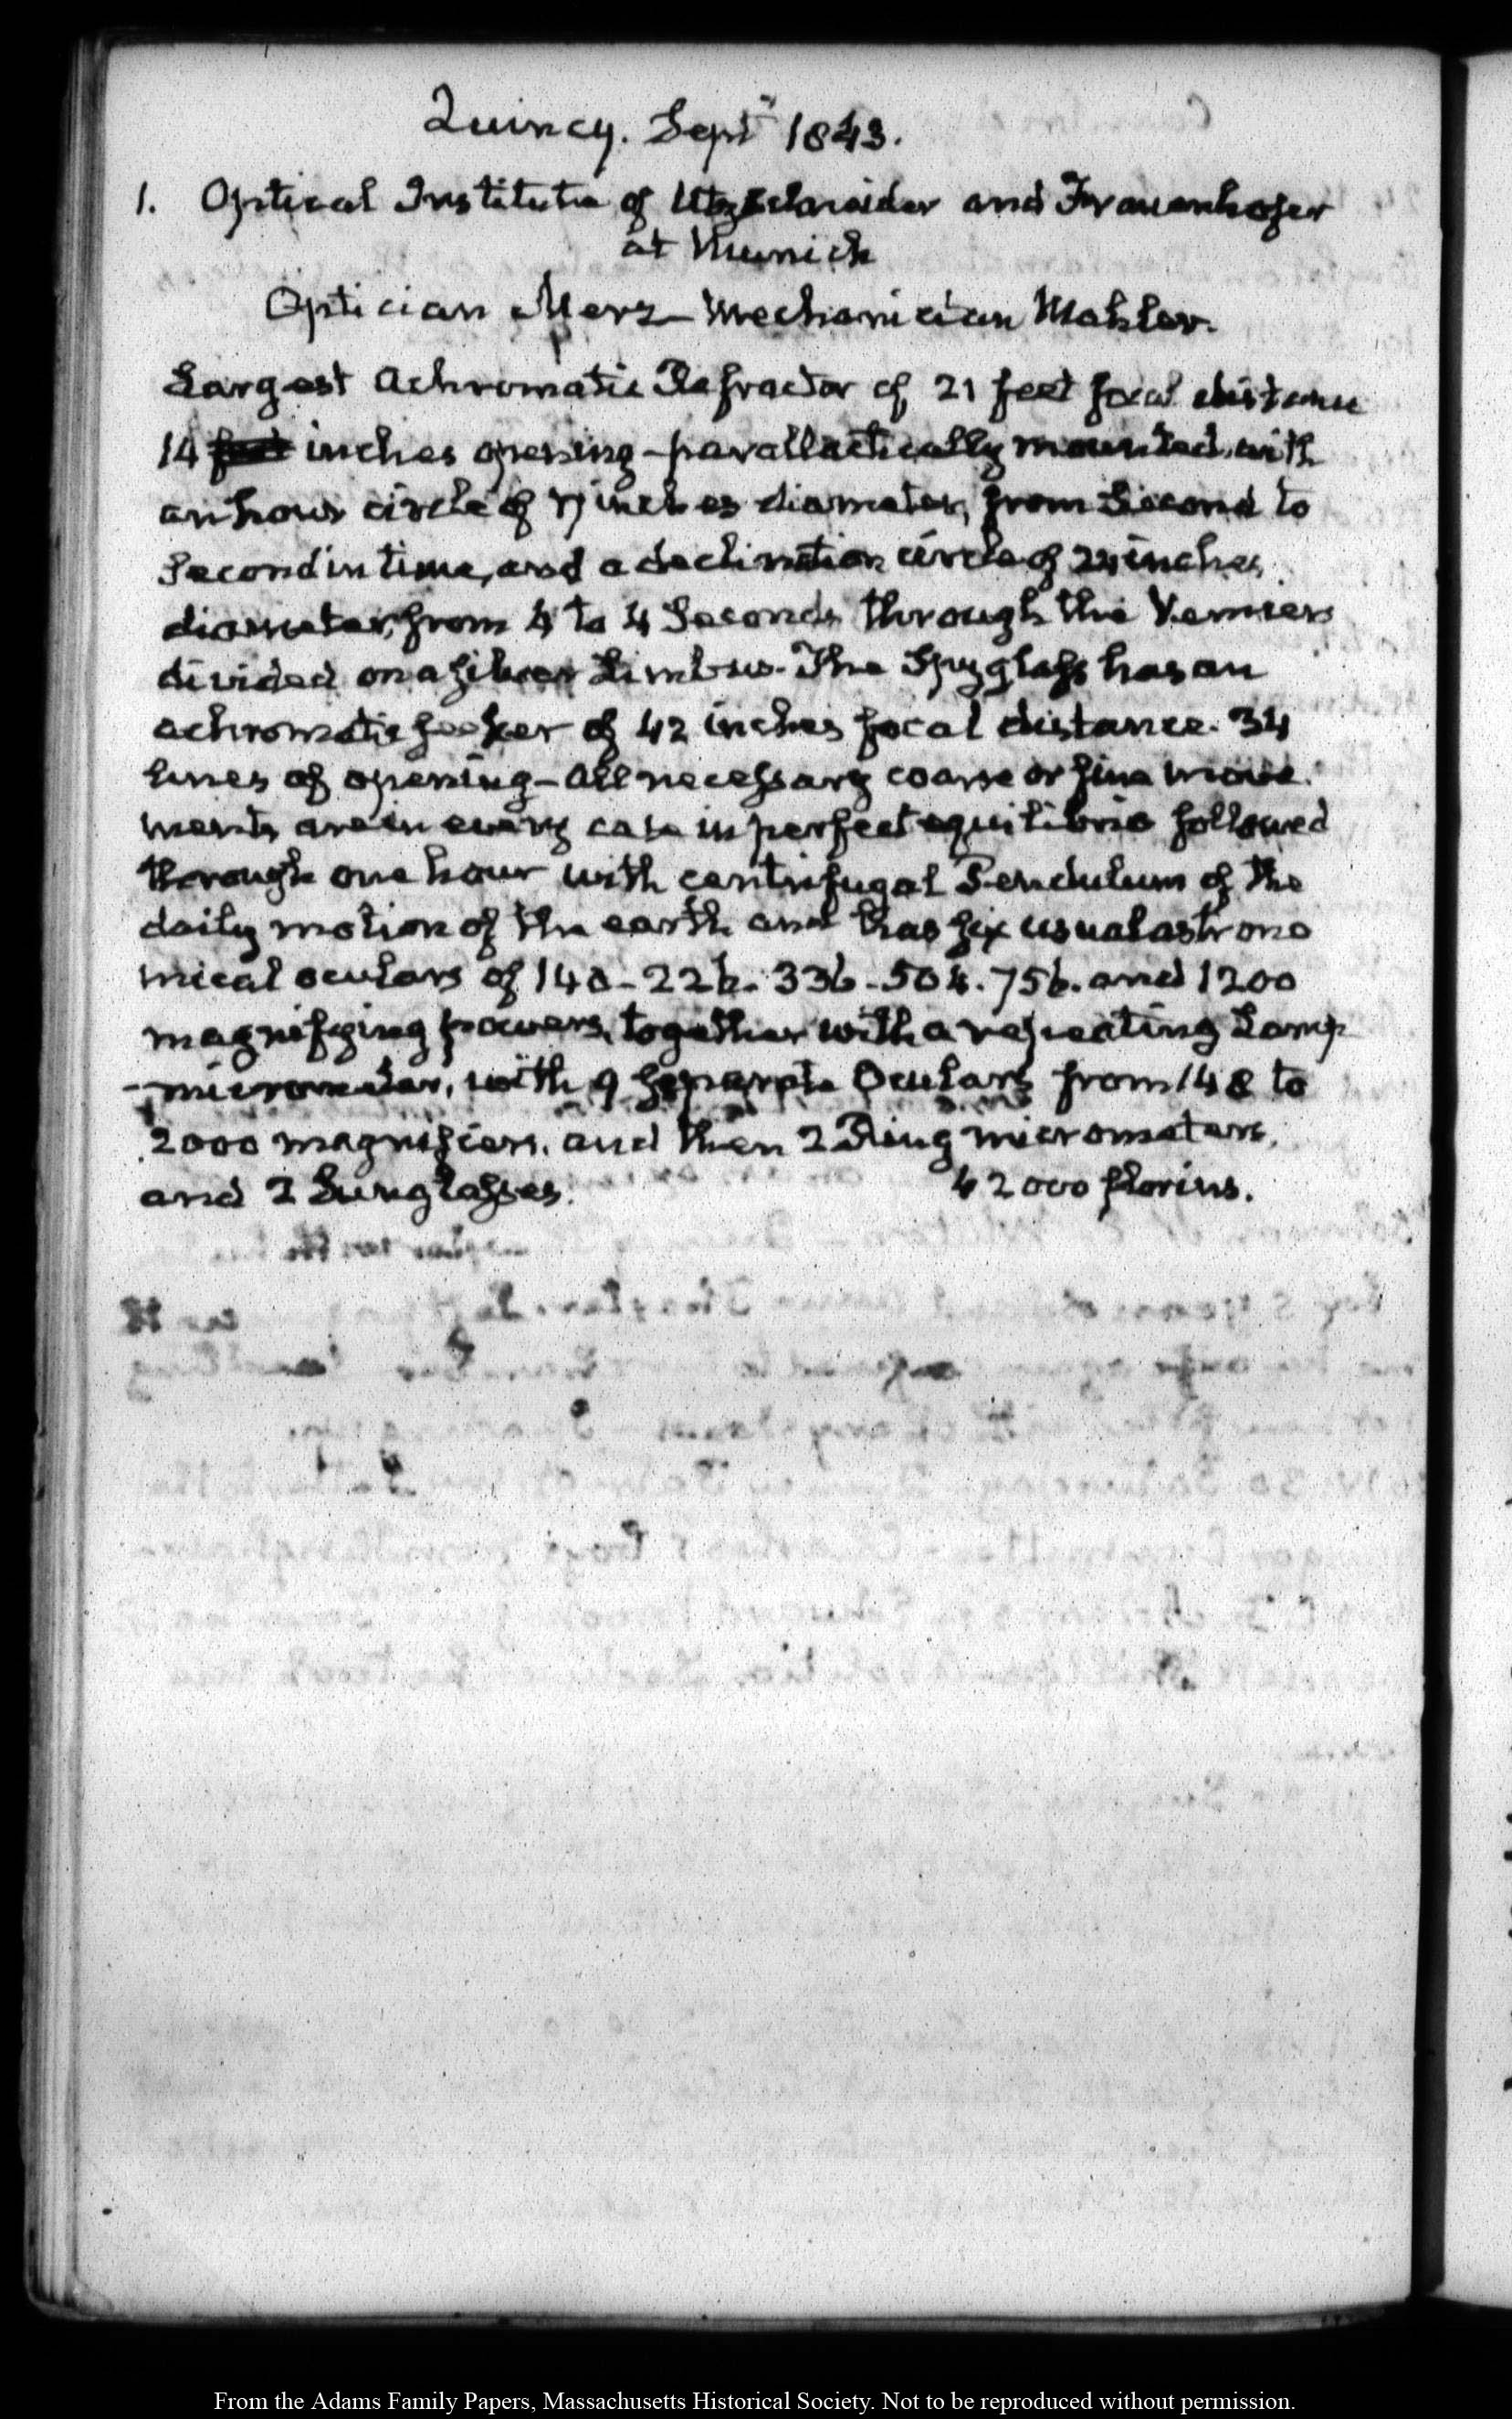 Quincy. Septr 1843.
1. Optical Institute of Utzschneider and Frauenhofer
at Munich
Optician Merz – Mechanician Mahler.
Largest Achromatic Refractor of 21 feet focal distance
14 feet inches opening – parallactically mounted, with
an hour circle of inches diameter, from Second to
Second in time, and a declination circle of 24 inches
diameter, from 4 to 4 Seconds through the Verniers
divided on a silver Limbus. The Spyglass has an
achromatic seeker of 42 inches focal distance. 34
lines of opening – All necessary coarse or fine move
ments are in every case in perfect equilibrio followed
through one hour with centrifugal Pendulum of the
daily motion of the earth and has six usual astrono
mical oculars of 140 – 226. 336 – 504. 756. and 1200
magnifying powers, together with a repeating Lamp
– micrometer, with 9 separate Oculars from 148 to
2000 magnifiers. and then 2 Ring micrometers,
and 2 Sunglasses. 42000 florins.
From the Adams Family Papers, Massachusetts Historical Society. Not to be reproduced without permission.